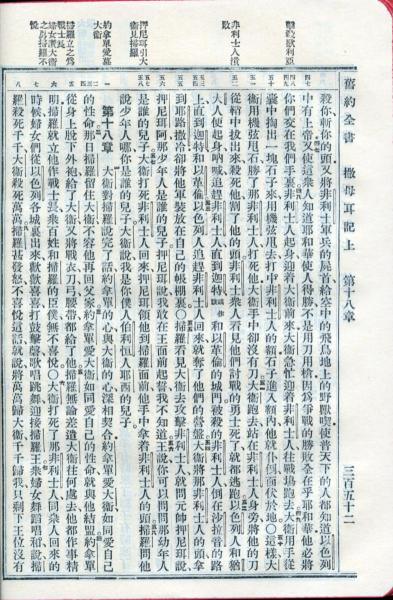 舊約全書 撒母耳記上 第十八章 三百五十二
擊殺歌利亞
非利士人潰敗
押尼珥引大衞見掃羅
約拿單愛慕大衞
掃羅立之為戰士長
婦女讚大衞
殺你斬你的頭又將非利士軍兵的屍首給空中的飛鳥地上的野獸喫使普天下的人都知道以色列
中有上帝又使這衆人知道耶和華使人得勝不是用刀用槍因爲爭戰的勝敗全在乎耶和華他必將
你們交在我們手裏非利士人起身迎着大衞前來大衞急忙迎着非利士人往戰塲跑去大衞用手從
囊中掏出一塊石子來用機弦甩去打中非利士人的額石子進入額內他就仆倒面伏於地〇這樣大
衞用機弦甩石勝了那非利士人打死他大衞手中卻沒有刀大衞跑去站在非利士人身旁將他的刀
從鞘中拔出來殺死他割了他的頭非利士衆人看見他們討戰的勇士死了就都逃跑以色列人和猶
大人便起身吶喊追趕非利士人直到迦特和以革倫的城門被殺的非利士人倒在沙拉音的路
上直到迦特和以革倫以色列人追趕非利士人回來就奪了他們的營盤大衞將那非利士人的頭拿
到耶路撒冷卻將他軍裝放在自己的帳棚裏〇掃羅看見大衞去攻擊非利士人就問元帥押尼珥說
押尼珥阿那少年人是誰的兒子押尼珥說我敢在王面前起誓我不知道王說你可以問問那幼年人
是誰的兒子大衞打死非利士人回來押尼珥領他到掃羅面前他手中拿着非利士人的頭掃羅問他
說少年人哪你是誰的兒子大衞說我是你僕人伯利恒人耶西的兒子
第十八章 大衞對掃羅說完了話約拿單的心與大衞的心深相契合約拿單愛大衞如同愛自己
的性命那日掃羅留住大衞不容他再回父家約拿單愛大衞如同愛自己的性命就與他結盟約拿單
從身上脫下外袍給了大衞又將戰衣刀弓腰帶都給了他掃羅無論差遣大衞往何處去他都作事精
明掃羅就立他作戰士長衆百姓和掃羅的臣僕無不喜悅〇大衞打死了那非利士人同衆人回來的
時候婦女們從以色列各城裏出來歡歡喜喜打鼓擊磬歌唱跳舞迎接掃羅王衆婦女舞蹈唱和說掃
羅殺死千千大衞殺死萬萬掃羅甚發怒不喜悅這話就說將萬萬歸大衞千千歸我只剩下王位沒有